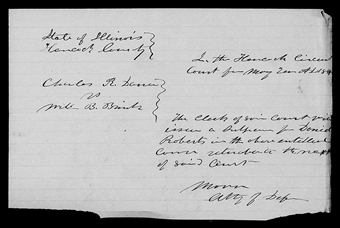 State of Illinois
Hancock County
In the Hancock Circuit
Court for May Term A.D. 184
Charles R. Dana
vs
Will B. Brink
The Clerk of said Court will
issue a Subpoena for David
Roberts in the above entitled
Cause returnable to the next
of said Court
Moore
Atty of Def